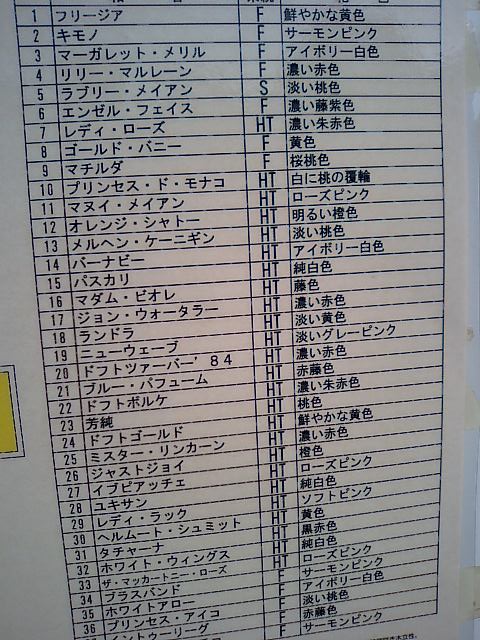 1 フリージア F 鮮やかな黄色
2 キモノ F サーモンピンク
3 マーガレット・メリル F アイボリー白色
4 リリー・マルレーン F 濃い赤色
5 ラブリー・メイアン S 淡い桃色
6 エンゼル・フェイス F 濃い藤紫色
7 レディ・ローズ HT 濃い朱赤色
8 ゴールド・バニー F 黄色
9 マチルダ F 桜桃色
10 プリンセス・ド・モナコ HT 白に桃の覆輪
11 マヌイ・メイアン HT ローズピンク
12 オレンジ・シャトー HT 明るい橙色
13 メルヘン・ケーニギン HT 淡い桃色
14 バーナビー HT アイボリー白色
15 パスカリ HT 純白色
16 マダム・ビオレ HT 藤色
17 ジョン・ウォータラー HT 濃い赤色
18 ランドラ HT 淡い黄色
19 ニューウェーブ HT 淡いグレーピンク
20 ドフトツァーバー'84 HT 濃い赤色
21 ブルー・パフューム HT 赤藤色
22 ドフトボルケ HT 濃い朱赤色
23 芳純 HT 桃色
24 ドフトゴールド HT 鮮やかな黄色
25 ミスター・リンカーン HT 濃い赤色
26 ジャストジョイ HT 橙色
27 イブピアッチェ HT ローズピンク
28 ユキサン HT 純白色
29 レディ・ラック HT ソフトピンク
30 ヘルムート・シュミット HT 黄色
31 タチャーナ HT 黒赤色
32 ホワイト・ウィングス HT 純白色
33 ザ・マッカートニー・ローズ HT ローズピンク
34 ブラスバンド F サーモンピンク
35 ホワイトアロー F アイボリー白色
36 プリンセス・アイコ F 淡い桃色
F 赤藤色
F サーモンピンク